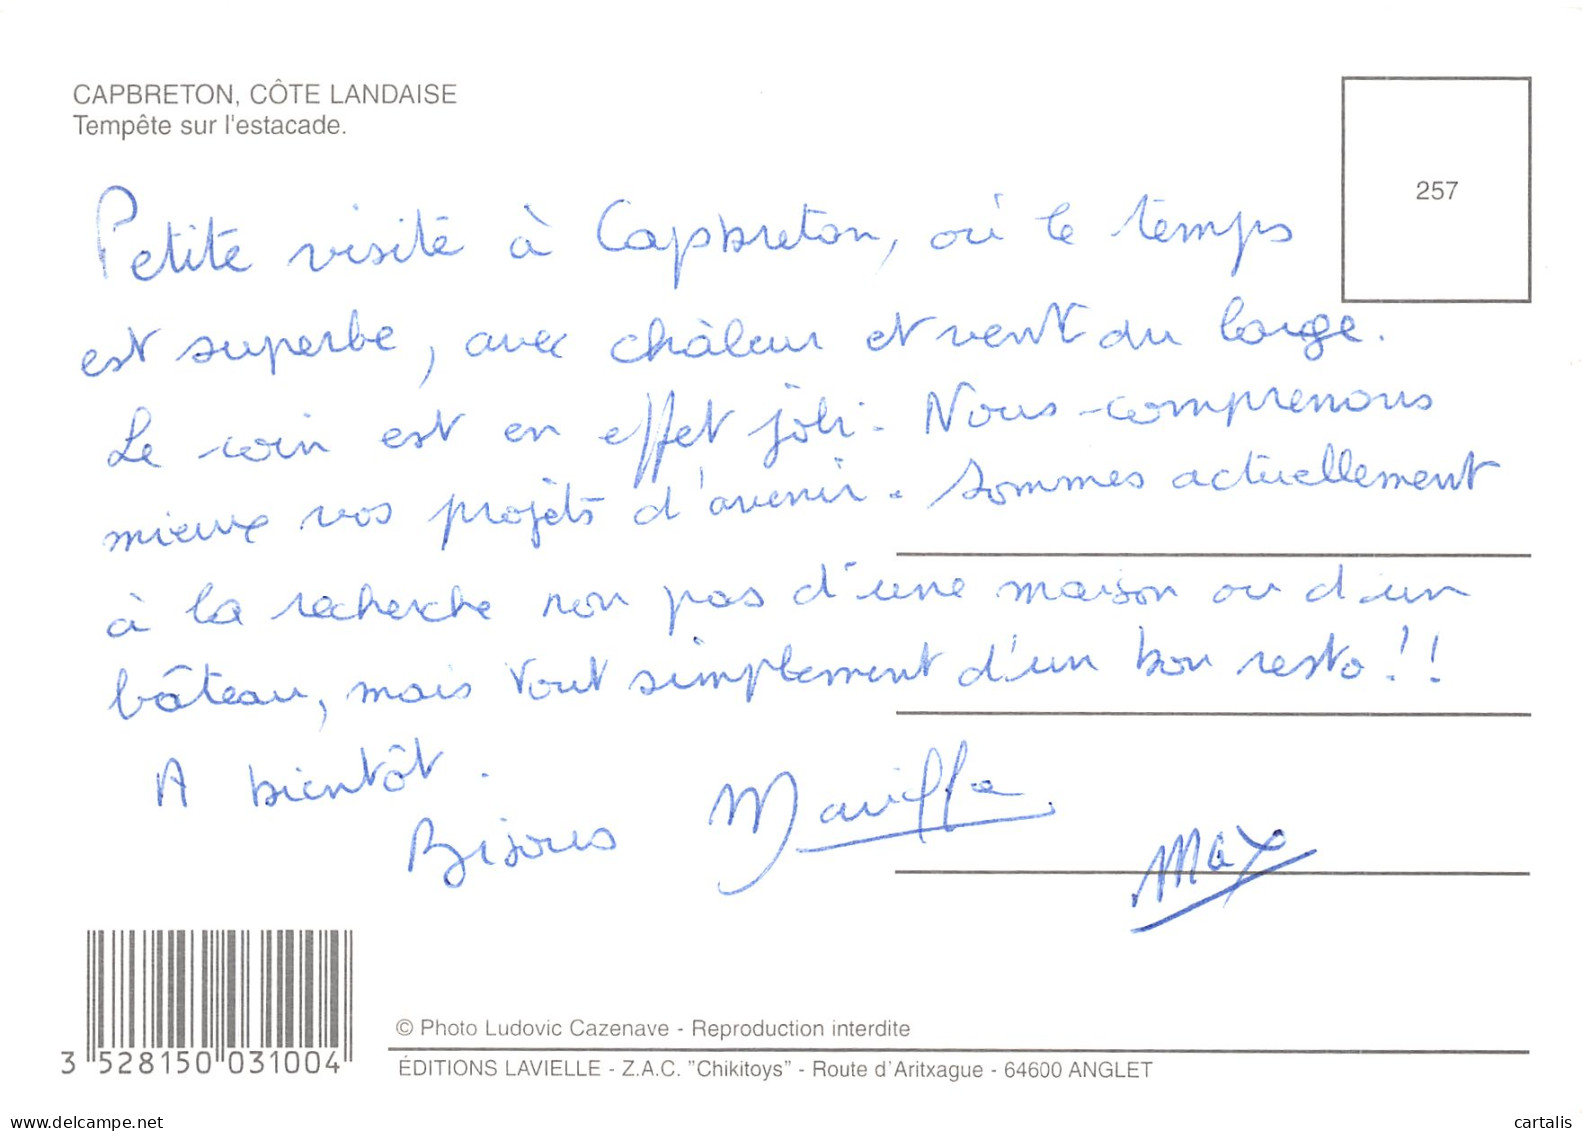 CAPBRETON, CÔTE LANDAISE
Tempête sur l'estacade.
257
Petite visite à Capbreton, où le temps
est superbe, avec châleur et vent du large.
Le coin est en effet joli. Nous comprenons
mieux vos projets d'avenir. Sommes actuellement
à la recherche non pas d'une maison ou d'un
bâteau, mais tout simplement d'un bon resto!!
A bientôt.
Bisous
Max
3 528150 031004
© Photo Ludovic Cazenave - Reproduction interdite
ÉDITIONS LAVIELLE - Z.A.C. "Chikitoys" - Route d'Aritxague - 64600 ANGLET
www.delcampe.net
cartalis